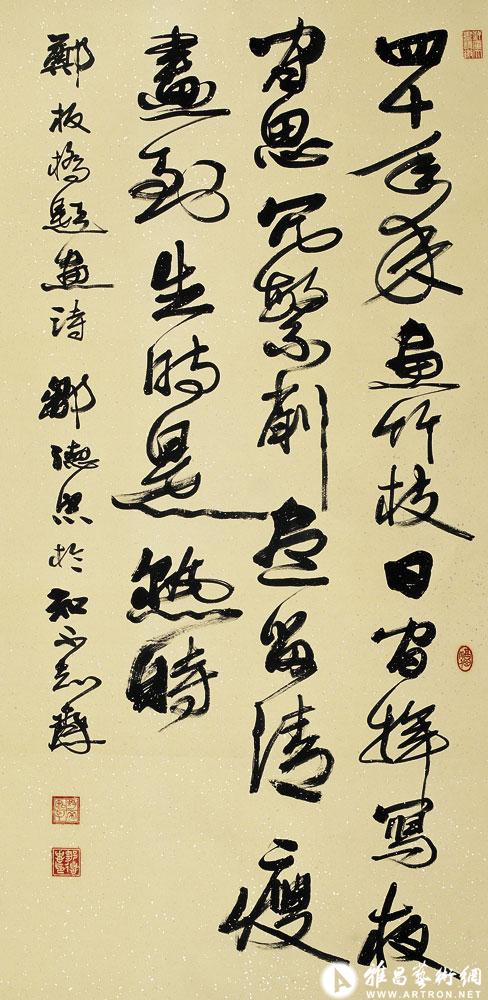 四十年來畫竹枝日間揮寫夜
間思冗繁削盡留清瘦
畫到生時是熟時
鄭板橋題畫詩 鄒德忠於知不齋
雅昌藝術網
WWW.ARTRON.NET